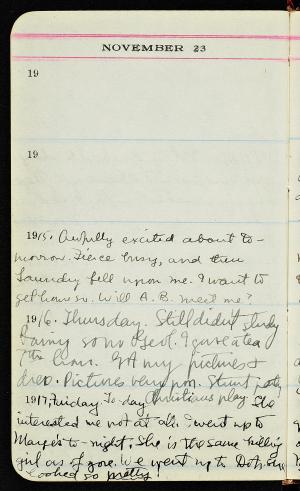 NOVEMBER 23
19
19
1915. Awfully excited about to-
morrow. Fierce busy, and then
laundry fell upon me. I want to
get home so. Will A.B. meet me?
1916. Thursday. Still didn't study
Rainy so no Geol. I gave a tea
this hour. Got my pictures &
dres. Pictures very poor. Stunt party
1917. Friday. To-day Ambitious play. She
interested me not at all. I went up to
Marge's to-night. She is the same
girl as of yore. We went up to Dot's
looked so pretty!